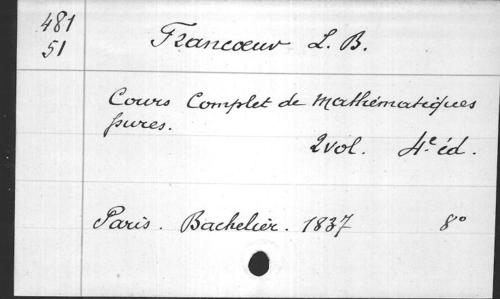 481
51
Francœur L. B.
Cours Complet de Mathématiques
pures.
2 vol. 4e éd.
Paris. Bachelier. 1837 8°